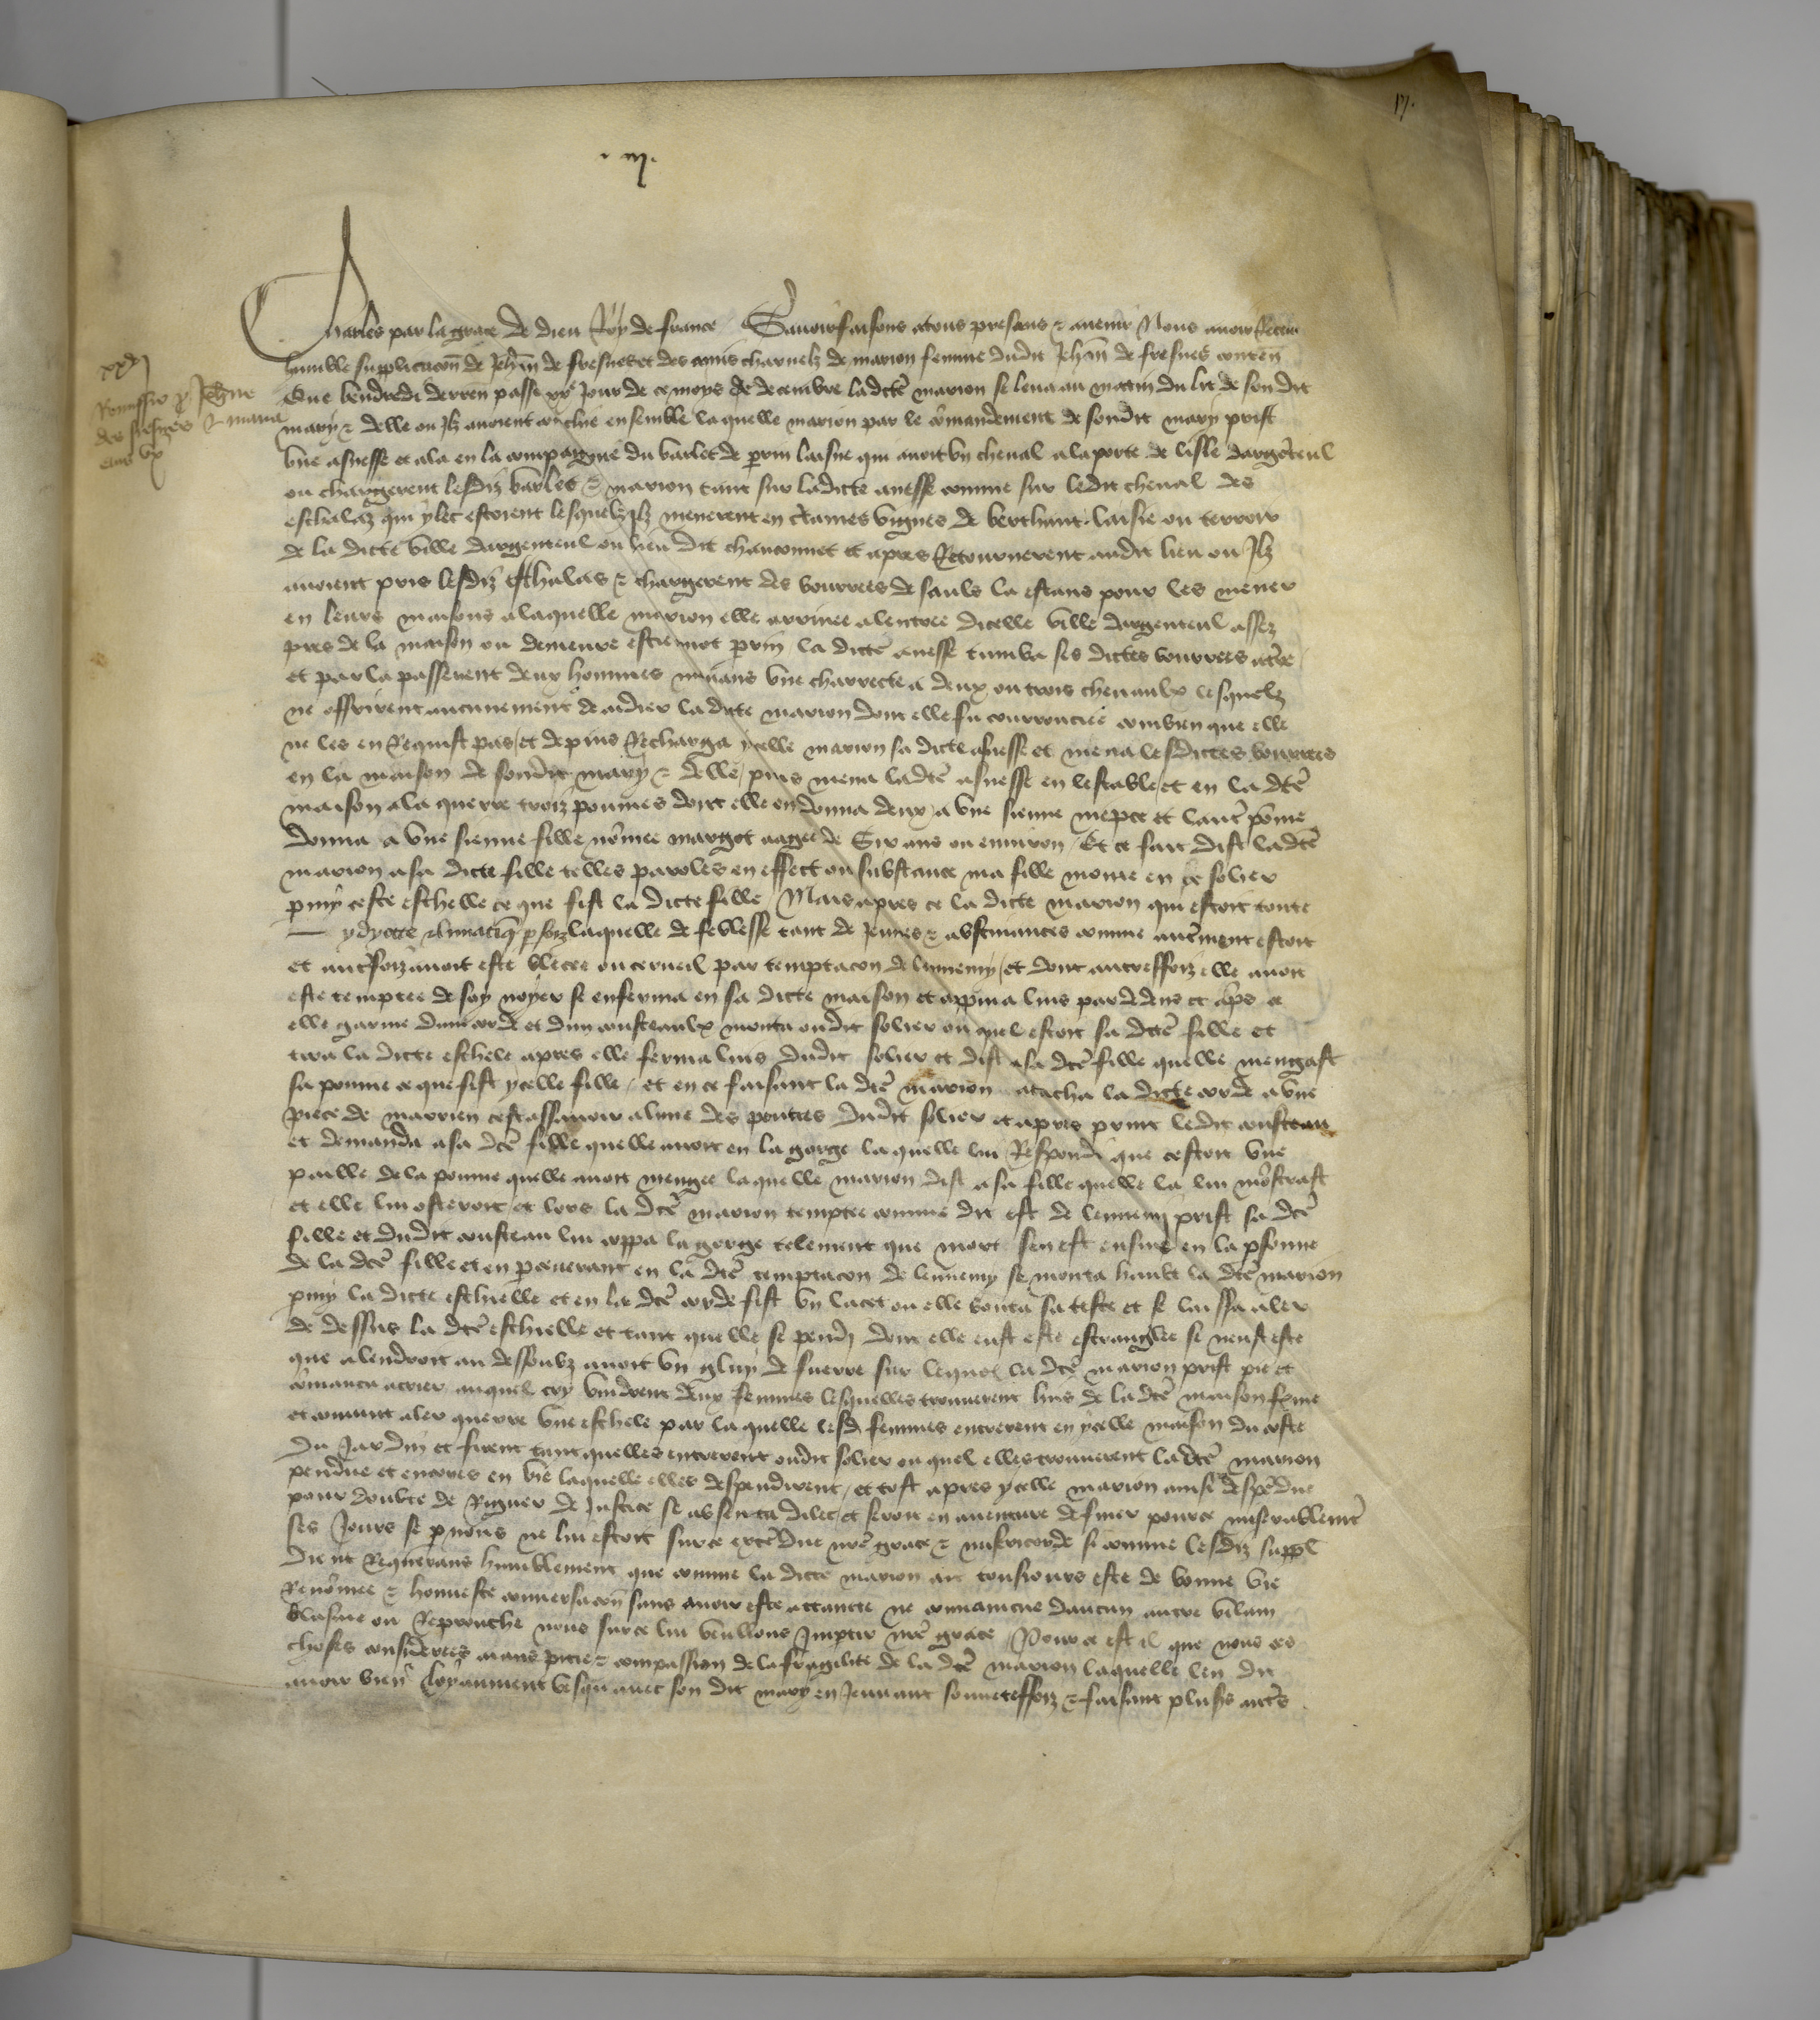 .iij.
Charles par la grace de dieu Roy de france Savoir faisons a tous presens & avenir Nous avoir Receu
humble supplicacōn de Jehān de fresnes et des amis charnelz de marion femme dudit Jehān de fresnes contenāt
Que vendredi derren passe xxe Jour de ce moys de decembre ladcte marion se leva au matin du lit de son dit
mary & delle ou Ilz avoient couchie ensemble laquelle marion par le cōmandement de sondit mary prist
xxij
Remissio p Jehāne
de fresnes & marie
eius ux
une asnesse et ala en la compaignie du varlet de perrin laisne qui avoit un cheval a la porte de lisle dargēteul
ou chargerent lesdiz varlet & marion tant sur ladicte anesse comme sur ledit cheval des
eschalaz qui ylec estoient lesquelz Ilz menerent en ctaines vignes de berthaut laisie ou terrour
de la dicte ville dargenteul ou lieu dit chauconnet et apres Retournerent audit lieu ou Ilz
avoient pris lesdiz eschalas & chargerent des bourrees de saulx la estans pour les mener
en leurs maisons a laquelle marion elle arrivee a lentree dicelle ville dargenteul assez
pres de la maison ou demeure estiennot perrin la dicte anesse tumba ses dictes bourrees a tre
et par la passerent deux hommes menans une charrecte a deux ou trois chevaulx lesquelz
ne offrirent aucunement de aidier la dicte marion dont elle fu courrouciee combien que elle
ne les en Requist pas et depuis Recharga ycelle marion sa dicte asnesse et mena lesdictes bourrees
en la maison de sondit mary & delle puis mena ladcte asnesse en lestable et en la dcte
maison ala querre troiz pommes dont elle en donna deux a une sienne niepce et lautre pōme
donna a une sienne fille nōmee margot aagee de Six ans ou environ Et ce fait dist ladcte
marion a sa dicte fille telles paroles en effect ou substance ma fille monte en ce solier
pmy ceste eschelle ce que fist la dicte fille Mais apres ce la dicte marion qui estoit toute
ydyote & lunatiq p foiz laquelle de feblesse tant de Jeunes & abstinances comme autrement estoit
et autsfoiz avoit este blecee ou cerveil par temptacon de lennemy et dont autresfoiz elle avoit
este temptee de soy noyer se enferma en sa dicte maison et apria luis par dedens et aps ce
elle garnie dune corde et dun cousteaulx monta oudit solier ou quel estoit sa dcte fille et
tira la dicte eschele apres elle ferma luis dudit solier et dist a sa dcte fille quelle mengast
sa pomme ce que fist ycelle fille et en ce faisant la dcte marion atacha la dicte corde a une
piece de marrien cest assavoir a lune des poutres dudit solier et apres print ledit cousteau
et demanda a sa dcte fille quelle avoit en la gorge laquelle lui Respondi que cestoit une
paille de la pomme quelle avoit mengee laquelle marion dist a sa fille quelle la lui mōstrast
et elle lui osteroit et lors la dcte marion temptee comme dit est de lennemy prist sa dcte
fille et dudit cousteau lui coppa la gorge telement que mort sen est ensuie en la psonne
de la dcte fille et en pseverant en la dcte temptacon de lennemy se monta hault la dcte marion
pmy la dicte eschielle et en la dcte corde fist un lacet ou elle bouta sa teste et se laissa aler
de dessus la dcte eschielle et tant quelle se pendi dont elle eust este estranglee se neust este
que a lendroit au dessoubz avoit un gluy de fuerre sur lequel la dcte marion prist pie et
cōmanca a crier auquel cry vindrent deux femmes lesquelles trouverent luis de la dcte maison ferme
et convint aler querre une eschele par la quelle lesd femmes entrerent en ycelle maison du coste
du Jardin et firent tant quelles entrerent oudit solier ou quel elles trouverent ladcte marion
pendue et encores en vie laquelle elles despendirent et tost apres ycelle marion ainsi despēdue
pour doubte de Rigueur de Justice se absenta dilec et seroit en aventure de finer pource miserablemēt
ses Jours se p nous ne lui estoit sur ce extēdue nre grace & misericorde si comme lesdiz suppl
dient Requerans humblement que comme la dicte marion ait tousiours este de bonne vie
Renōmee & honneste conversacon sans avoir este attainte ne convaincue daucun autre vilain
blasme ou Reprouche nous sur ce lui veullons Impartir nre grace Pour ce est il que nous ces
choses considerees aians pitie & compassion de la fragilite de la dcte marion laquelle len dit
avoir bien & loyaument vesqu avec son dit mary en Jeunant souventesfoiz & faisant plusrs autres